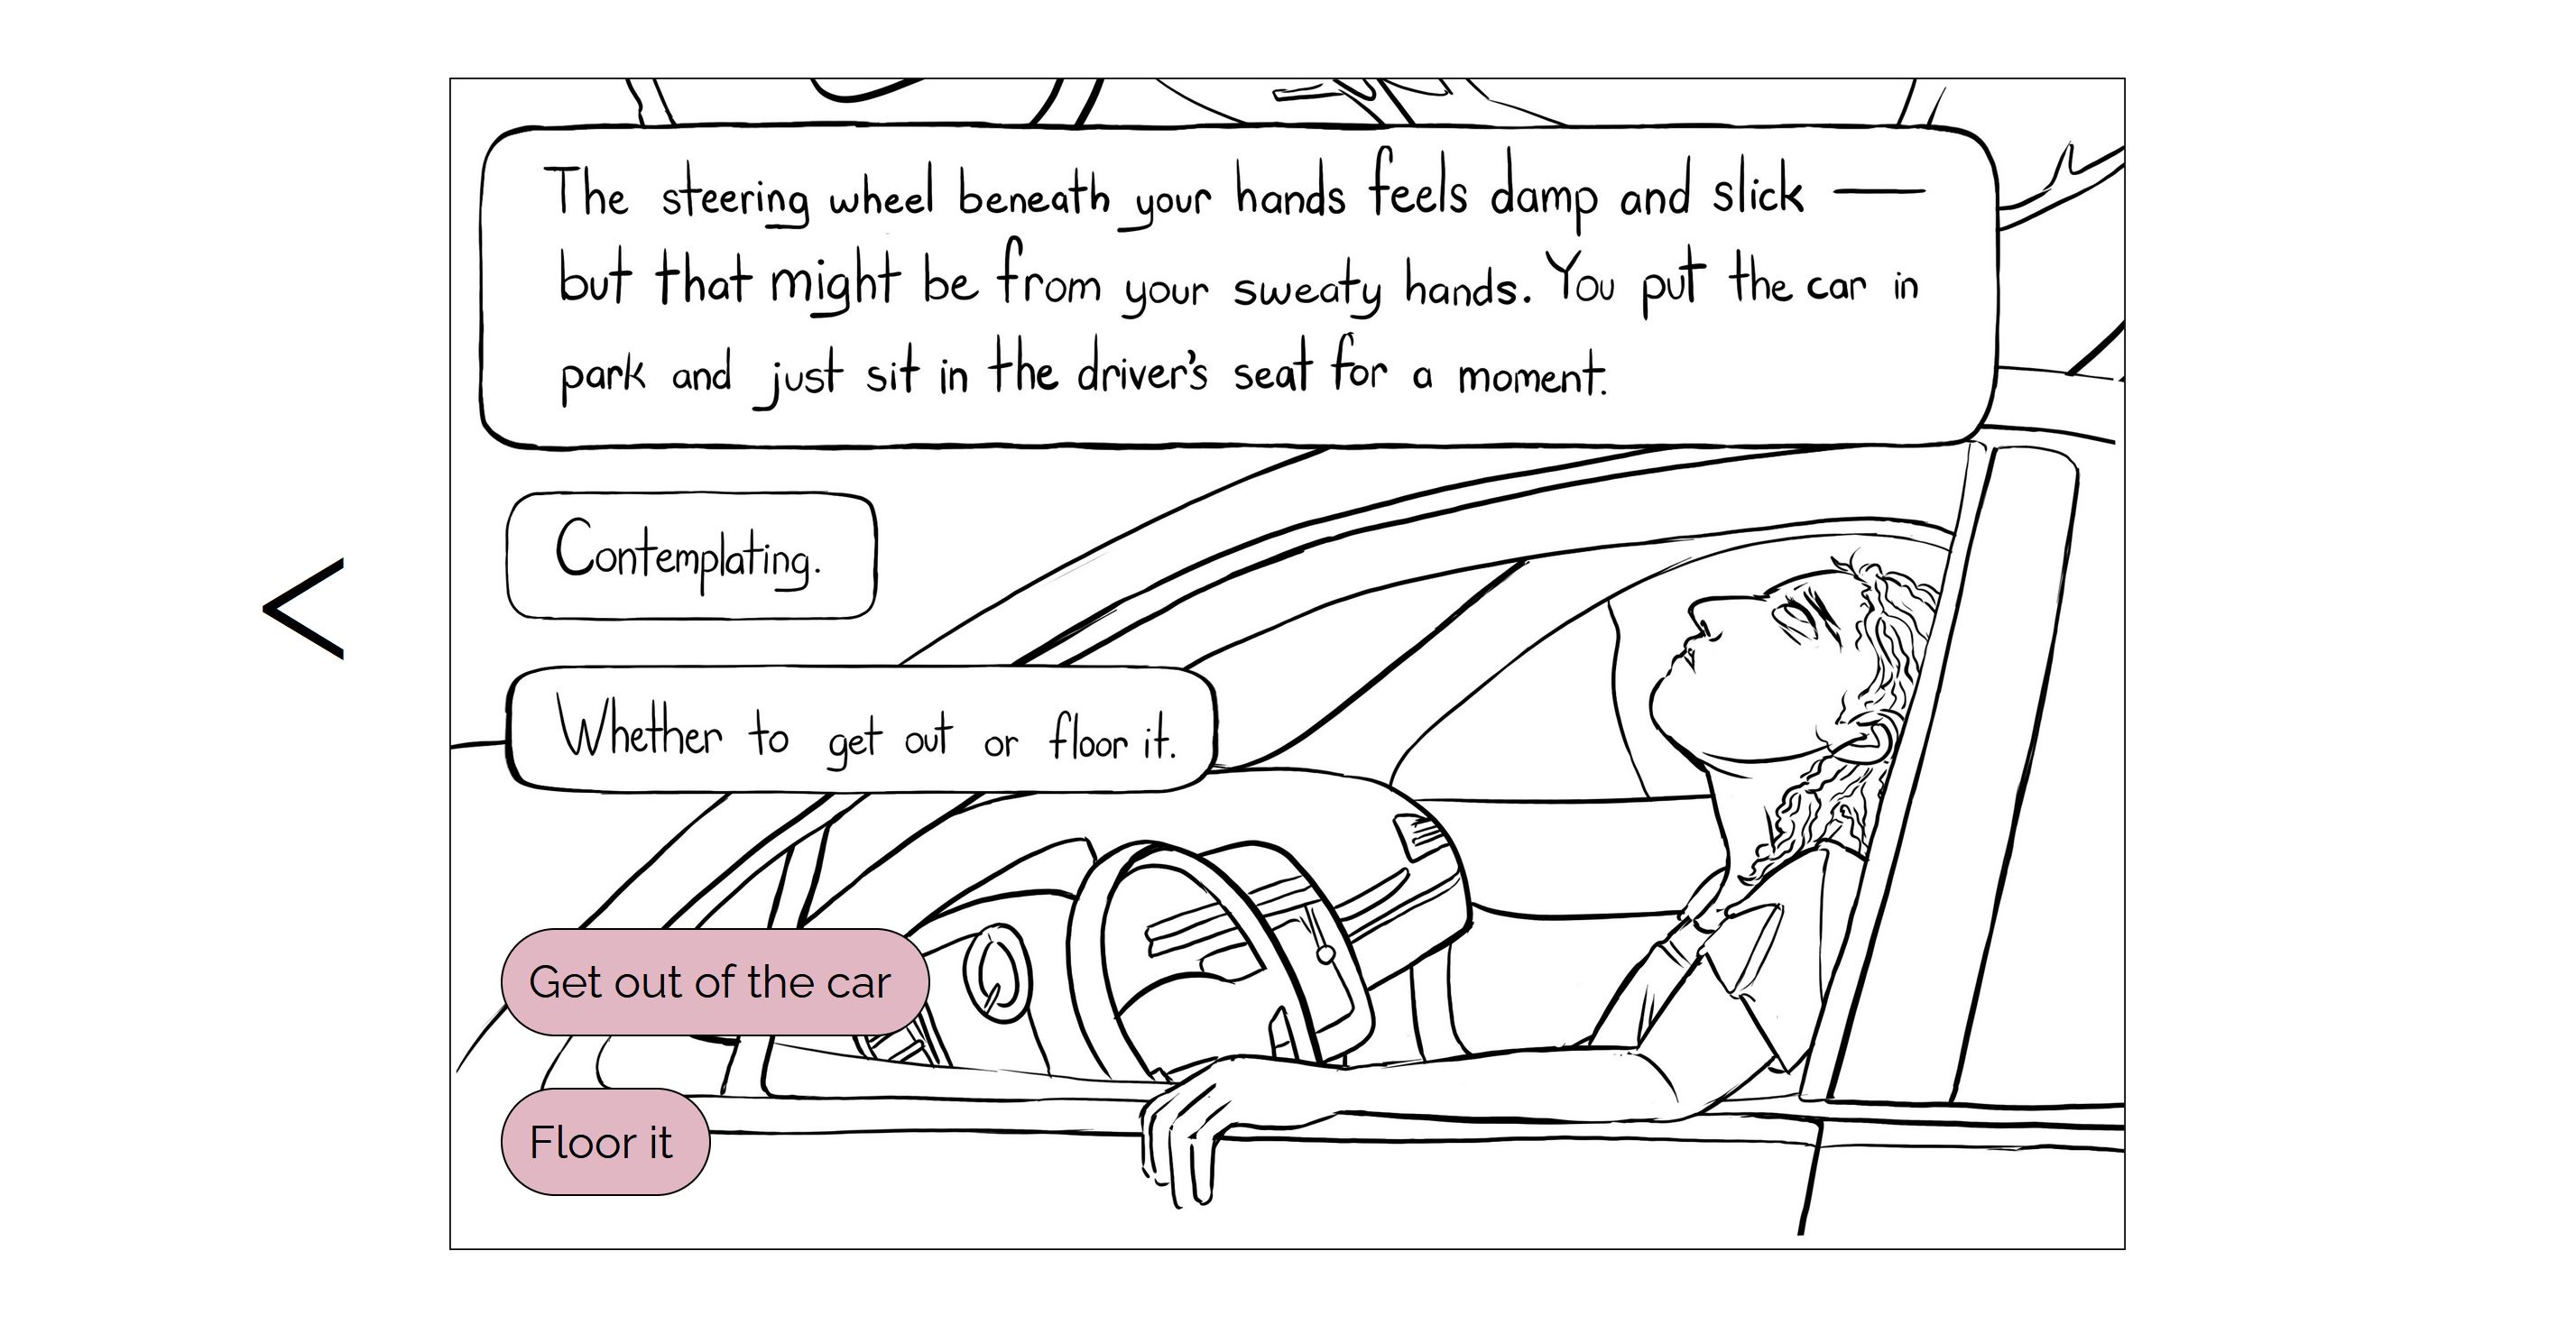 The steering wheel beneath your hands feels damp and slick —
but that might be from your sweaty hands. You put the car in
park and just sit in the driver's seat for a moment.
Contemplating.
Whether to get out or floor it.
Get out of the car
Floor it